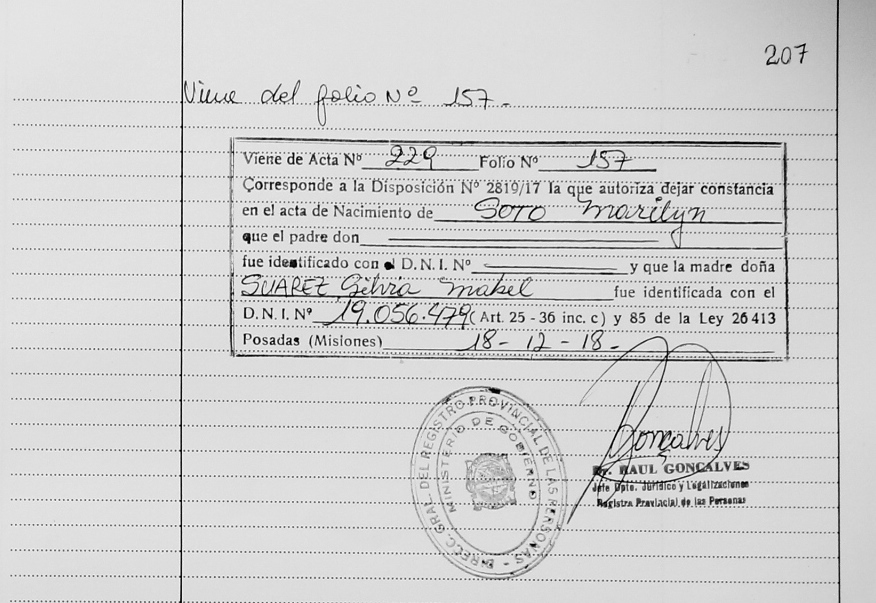 207
Viene del folio Nº 157.-
Viene de Acta Nº 229 Folio Nº 157
Corresponde a la Disposición Nº 2819/17 la que autoriza dejar constancia
en el acta de Nacimiento de SOTO Marilyn
que el padre don
fue identificado con el D.N.I. Nº y que la madre doña
SUAREZ Silvia Mabel fue identificada con el
D.N.I. Nº 19.056.479 (Art. 25 - 36 inc. c) y 85 de la Ley 26413
Posadas (Misiones) 18 - 12 - 18.-
DIREC. GRAL. DEL REGISTRO PROVINCIAL DE LAS PERSONAS -
MINISTERIO DE GOBIERNO
Gonçalves
Dr. RAUL GONÇALVES
Jefe Dpto. Jurídico y Legalizaciones
Registro Provincial de las Personas